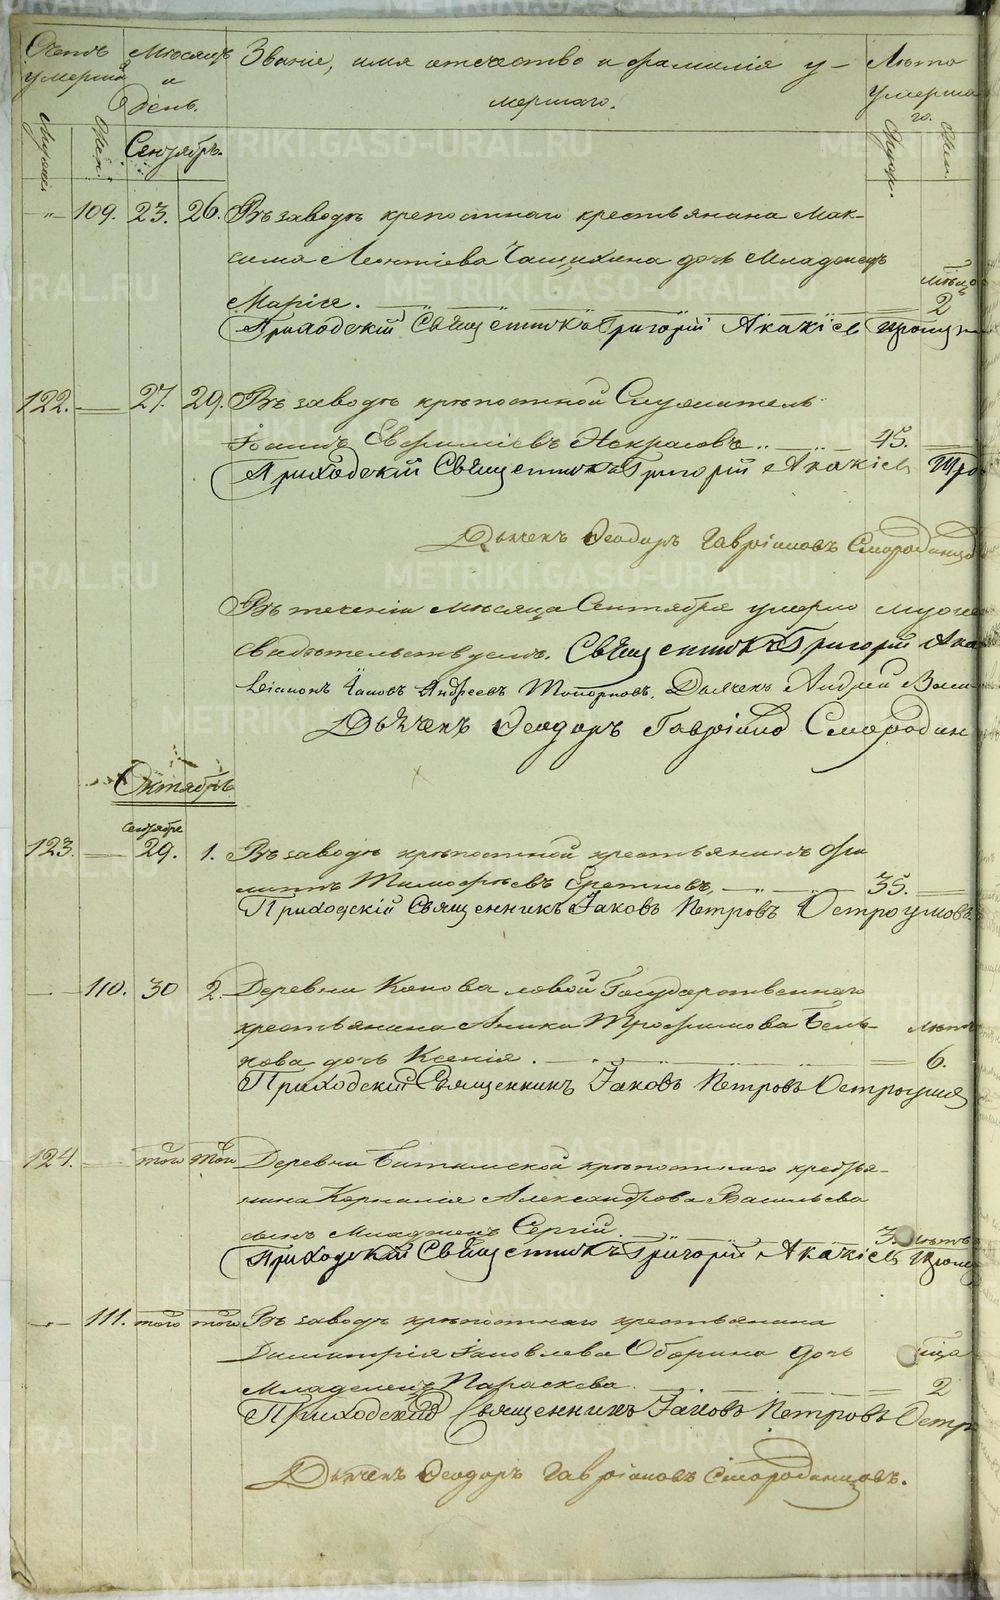 Счетъ умершихъ
Мѣсяцъ и день.
Званіе, имя отечество и фамилія у-
мершаго.
Лѣта умерша
го.
Мужск.
Жен.
Сентябрь.
Мужск.
Жен.
109. 23. 26. Въ заводѣ крепостнаго крестьянина Мак-
сима Леонтіева дочь Младенецъ
Марія. мѣсяц 2
Приходскій Священникъ Григорій Акакіев
122. 27. 29. Въ заводѣ крѣпостной Служитель
Іоаннъ Евфиміевъ Некрасовъ 45.
Приходскій Священникъ Григорій Акакіев
Дьячекъ Ѳеодоръ Гавріиловъ Смородинцо
Въ теченіи мѣсяца Сентября умерло муже
Свидѣтельствуемъ. Священникъ Григорій Ака
Діаконъ Іаковъ Андреевъ Топорковъ. Дьячекъ Андрей Васи
Дьячекъ Ѳеодоръ Гавріило Смородин
Октябрь
сентября
123. 29. 1. Въ заводѣ крѣпостной крестьянинъ Фи
липпъ Тимофѣевъ 35.
Приходскій Священникъ Іаковъ Петровъ Остроумовъ.
110. 30 2. Деревни Коноваловой Государственнаго
крестьянина Аники Трофимова Бель-
кова дочь Ксенія. лѣтъ 6.
Приходскій Священникъ Іаковъ Петровъ Остроумов
124. того того Деревни Битимской крѣпостнаго крестья-
нина Корнилія Александрова Васильева
сынъ Младенецъ Сергій. 3. лѣтъ
Приходскій Священникъ Григорій Акакіев
111. того того Въ заводѣ крѣпостнаго крестьянина
Димитрія Іаковлева Оборина дочь
Младенецъ Параскева. 2
Приходскій Священникъ Іаковъ Петровъ Остр
Дьячекъ Ѳеодоръ Гавріиловъ Смородинцовъ.
METRIKI.GASO-URAL.RU